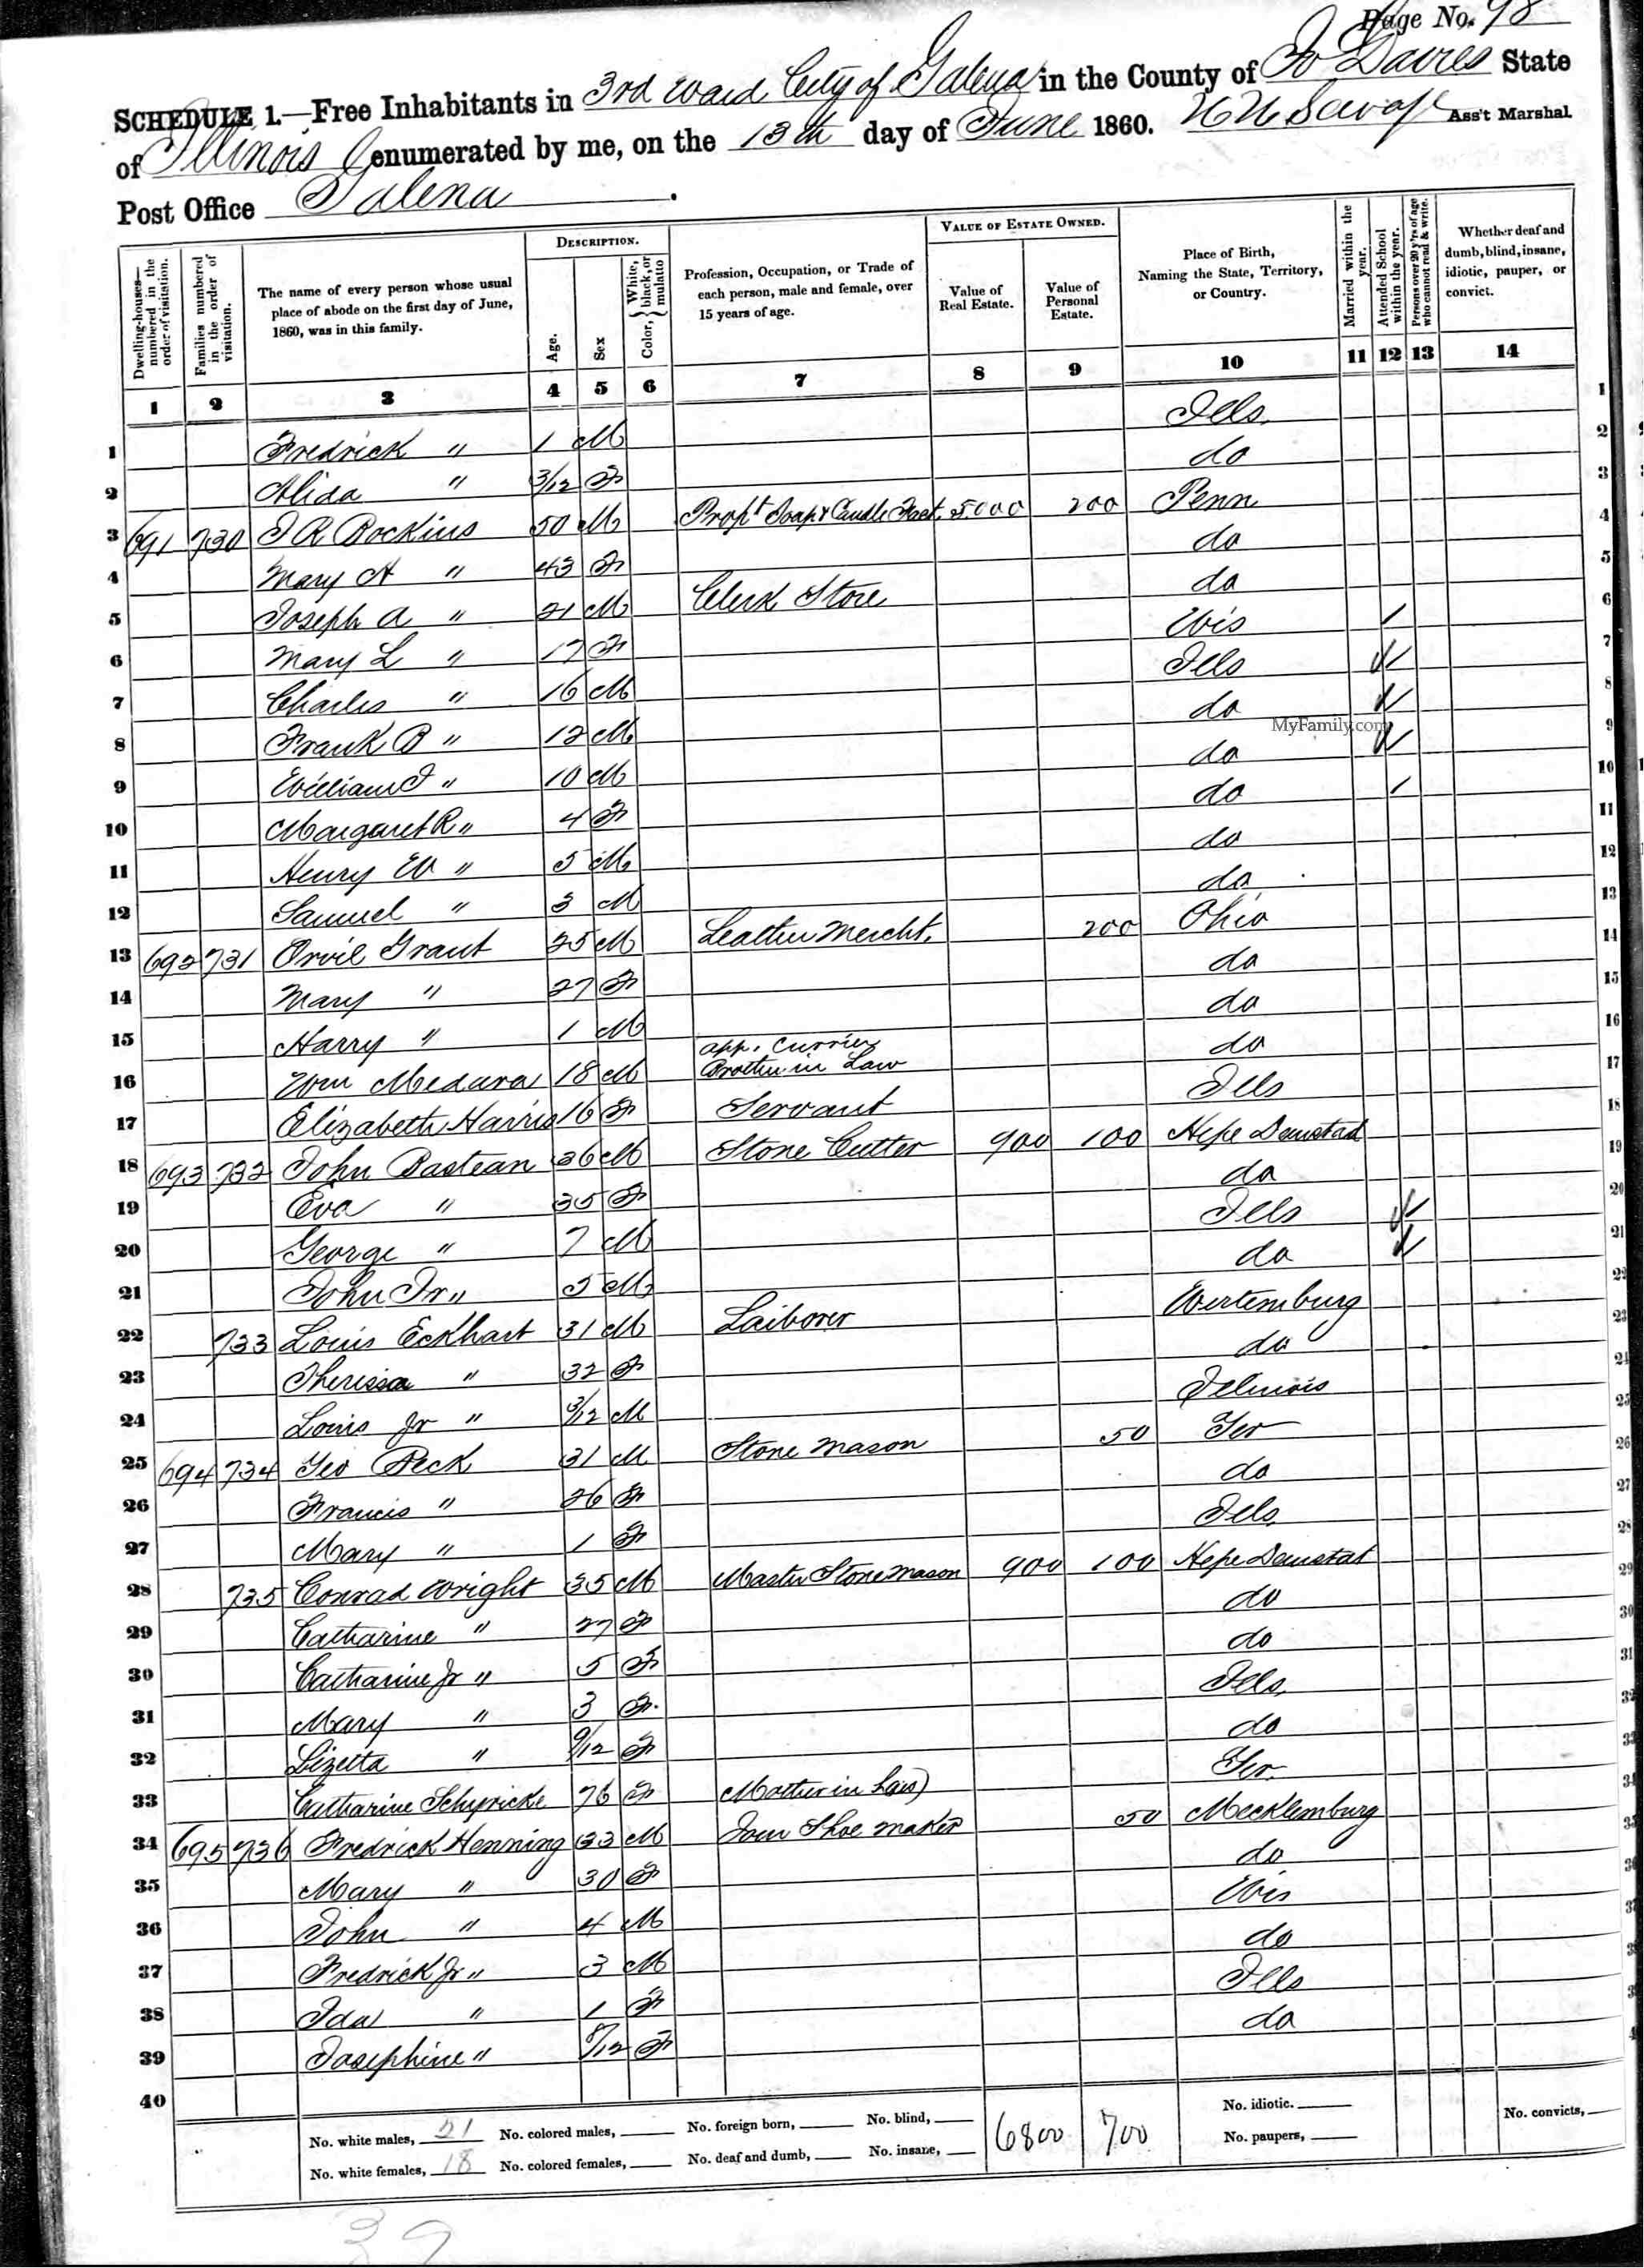 Page No. 98
SCHEDULE 1.—Free Inhabitants in 3rd Ward City of Galena in the County of Jo Davies State
of Illinois enumerated by me, on the 13th day of June 1860. Ass't Marshal
Post Office Galena.
Dwelling-houses—numbered in the order of visitation.
Families numbered in the order of visitation.
The name of every person whose usual place of abode on the first day of June, 1860, was in this family.
DESCRIPTION.
Age.
Sex
Color, { White, black, or mulatto
Profession, Occupation, or Trade of each person, male and female, over 15 years of age.
VALUE OF ESTATE OWNED.
Value of Real Estate.
Value of Personal Estate.
Place of Birth, Naming the State, Territory, or Country.
Married within the year.
Attended School within the year.
Persons over 20 y'rs of age who cannot read & write.
Whether deaf and dumb, blind, insane, idiotic, pauper, or convict.
1 2 3 4 5 6 7 8 9 10 11 12 13 14
1 Fredrick " 1 M Ills. 1
2 Alida " 3/12 F do 2
3 691 730 J R Bockius 50 M Propt Soap & Candle Fact. 5000 200 Penn 3
4 Mary A " 43 F do 4
5 Joseph A " 21 M Clerk Store do 5
6 Mary L " 17 F Wis / 6
7 Charles " 16 M Ills / 7
8 Frank B " 12 M do / 8
MyFamily.com
9 William J " 10 M do / 9
10 Margaret R " 4 F do / 10
11 Henry W " 5 M do 11
12 Samuel " 3 M do 12
13 692 731 Orvil Grant 25 M Leather Mercht. 200 Ohio 13
14 Mary " 27 F do 14
15 Harry " 1 M do 15
16 Wm Medara 18 M app. Currier Brother in Law do 16
17 Elizabeth Harris 16 F Servant Ills 17
18 693 732 John Bastean 36 M Stone Cutter 900 100 Hepe Damstad 18
19 Eva " 35 F do 19
20 George " 7 M Ills / 20
21 John Jr " 5 M do / 21
22 733 Louis Eckhart 31 M Laiborer Wertemburg 22
23 Therissa " 32 F do 23
24 Louis Jr " 3/12 M Illinois 24
25 694 734 Geo Beck 31 M Stone Mason 50 Ger 25
26 Francis " 26 F do 26
27 Mary " 1 F Ills 27
28 735 Conrad Wright 35 M Master Stone Mason 900 100 Hepe Damstat 28
29 Catharine " 27 F do 29
30 Catharine Jr " 5 F do 30
31 Mary " 3 F Ills 31
32 Lizetta " 9/12 F do 32
33 Catharine 76 F Mother in Law Ger. 33
34 695 736 Fredrick Henning 33 M Jour Shoe maker 50 Mecklemburg 34
35 Mary " 30 F do 35
36 John " 4 M Wis 36
37 Fredrick Jr " 3 M do 37
38 Ida " 1 F Ills 38
39 Josephine " 8/12 F do
40
No. white males, 21 No. colored males, No. foreign born, No. blind, 6800 700 No. idiotic. No. convicts,
No. white females, 18 No. colored females, No. deaf and dumb, No. insane, No. paupers,
39